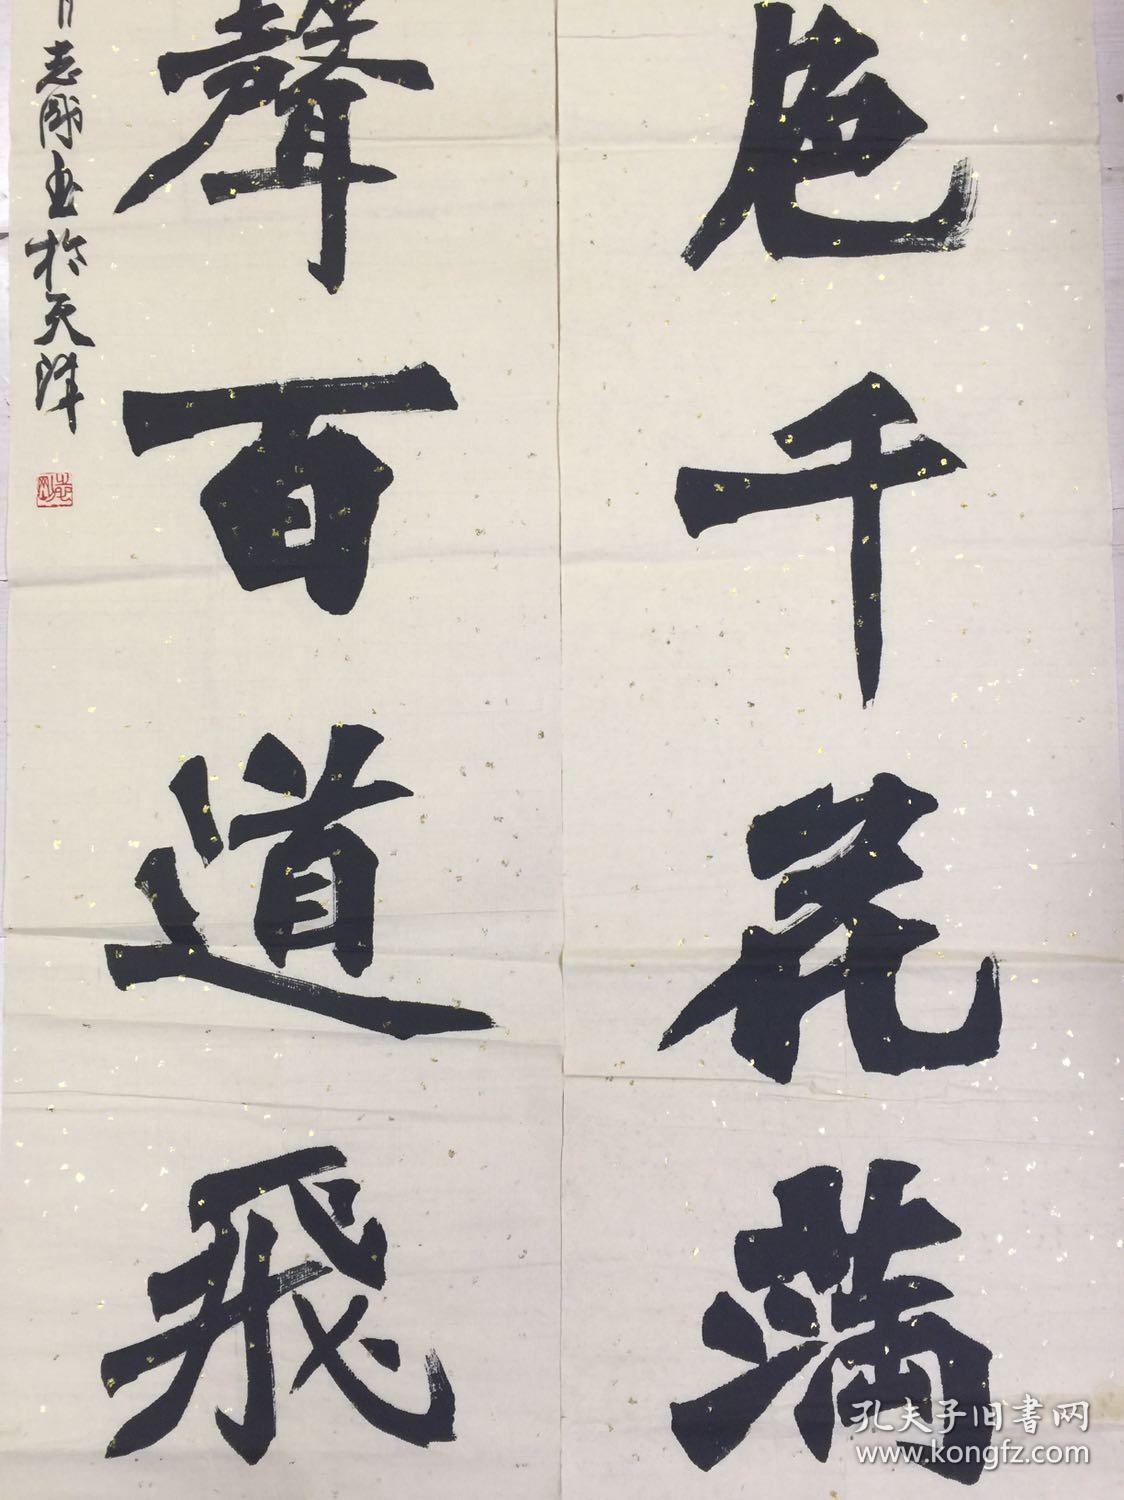 色千花满
聲百道飛
志刚书於天津
孔夫子旧书网
www.kongfz.com